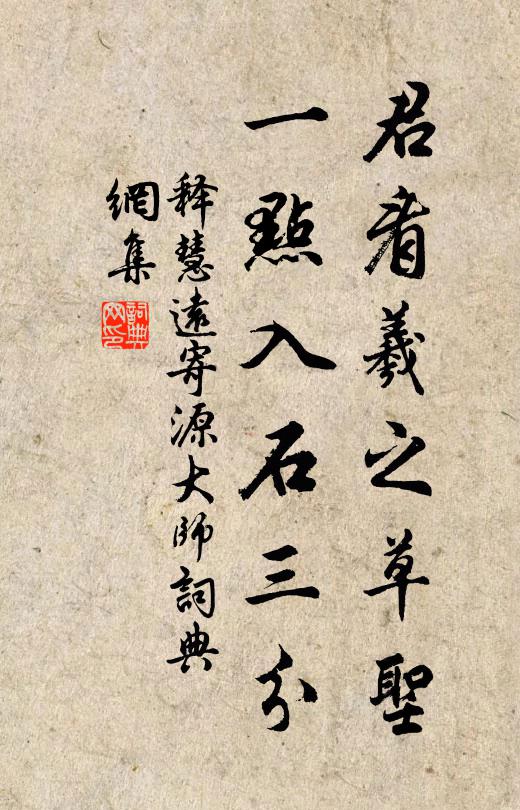 君看羲之草聖
一點入石三分
释慧遠寄源大師詞典
網集
詞典
网印